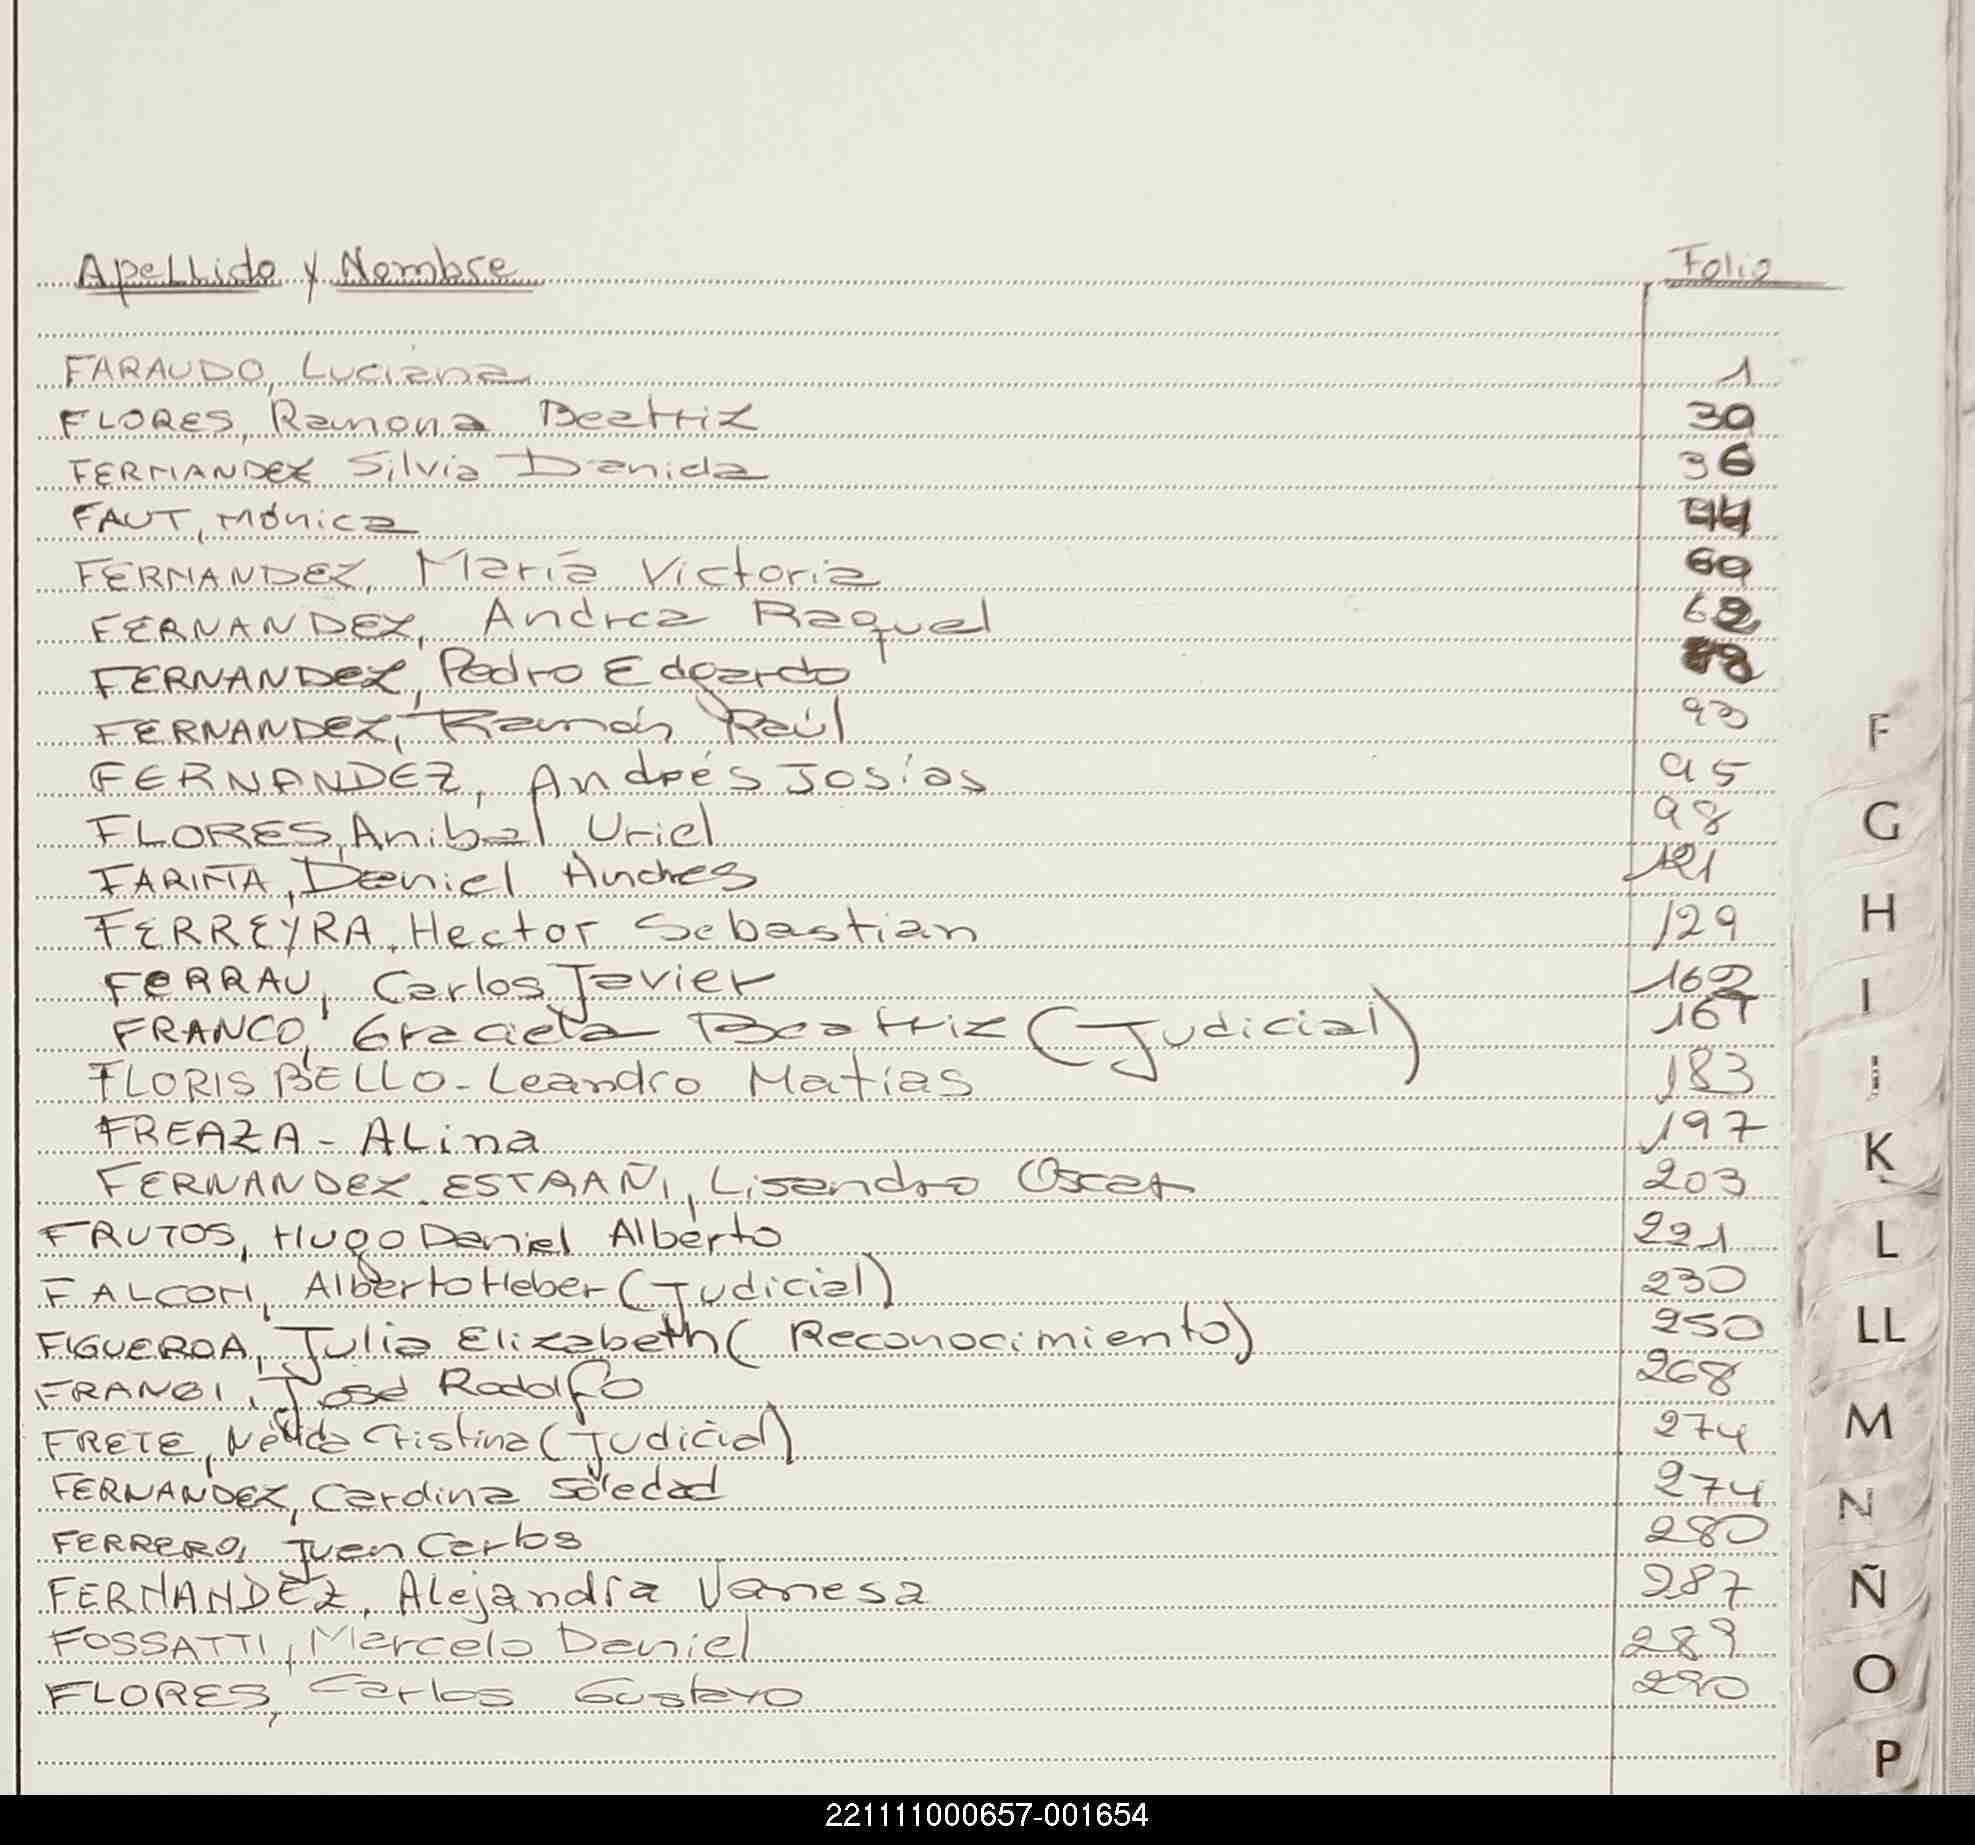 Apellido y Nombre Folio
FARAUDO, Luciana 1
FLORES, Ramona Beatriz 30
FERNANDEZ Silvia Daniela 36
FAUT, Mónica 44
FERNANDEZ, María Victoria 60
FERNANDEZ, Andrea Raquel 62
FERNANDEZ, Pedro Edgardo
FERNANDEZ, Ramón Raúl 93
FERNANDEZ, Andrés Josías 95
FLORES, Anibal Uriel 98
FARIÑA, Daniel Andres 121
FERREYRA, Hector Sebastian 129
FERRAU, Carlos Javier 162
FRANCO, Graciela Beatriz (Judicial) 167
FLORIS BELLO - Leandro Matías 183
FREAZA - ALina 197
FERNANDEZ ESTRAÑI, Lisandro Oscar 203
FRUTOS, Hugo Daniel Alberto 221
FALCON, Alberto Heber (Judicial) 230
FIGUEROA, Julia Elizabeth (Reconocimiento) 250
José Rodolfo 268
FRETE, Nélida Cristina (Judicial) 274
FERNANDEZ, Carolina Soledad 274
FERRERO, Juan Carlos 280
FERNANDEZ, Alejandra Vanesa 287
FOSSATTI, Marcelo Daniel 289
FLORES, Carlos Gustavo 290
F
G
H
I
K
L
LL
M
N
Ñ
O
P
221111000657-001654